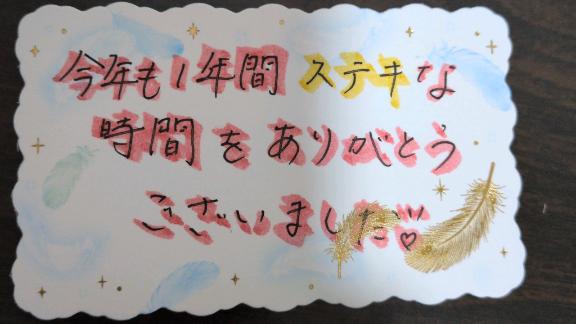 今年も1年間 ステキな
時間をありがとう
ございました♡